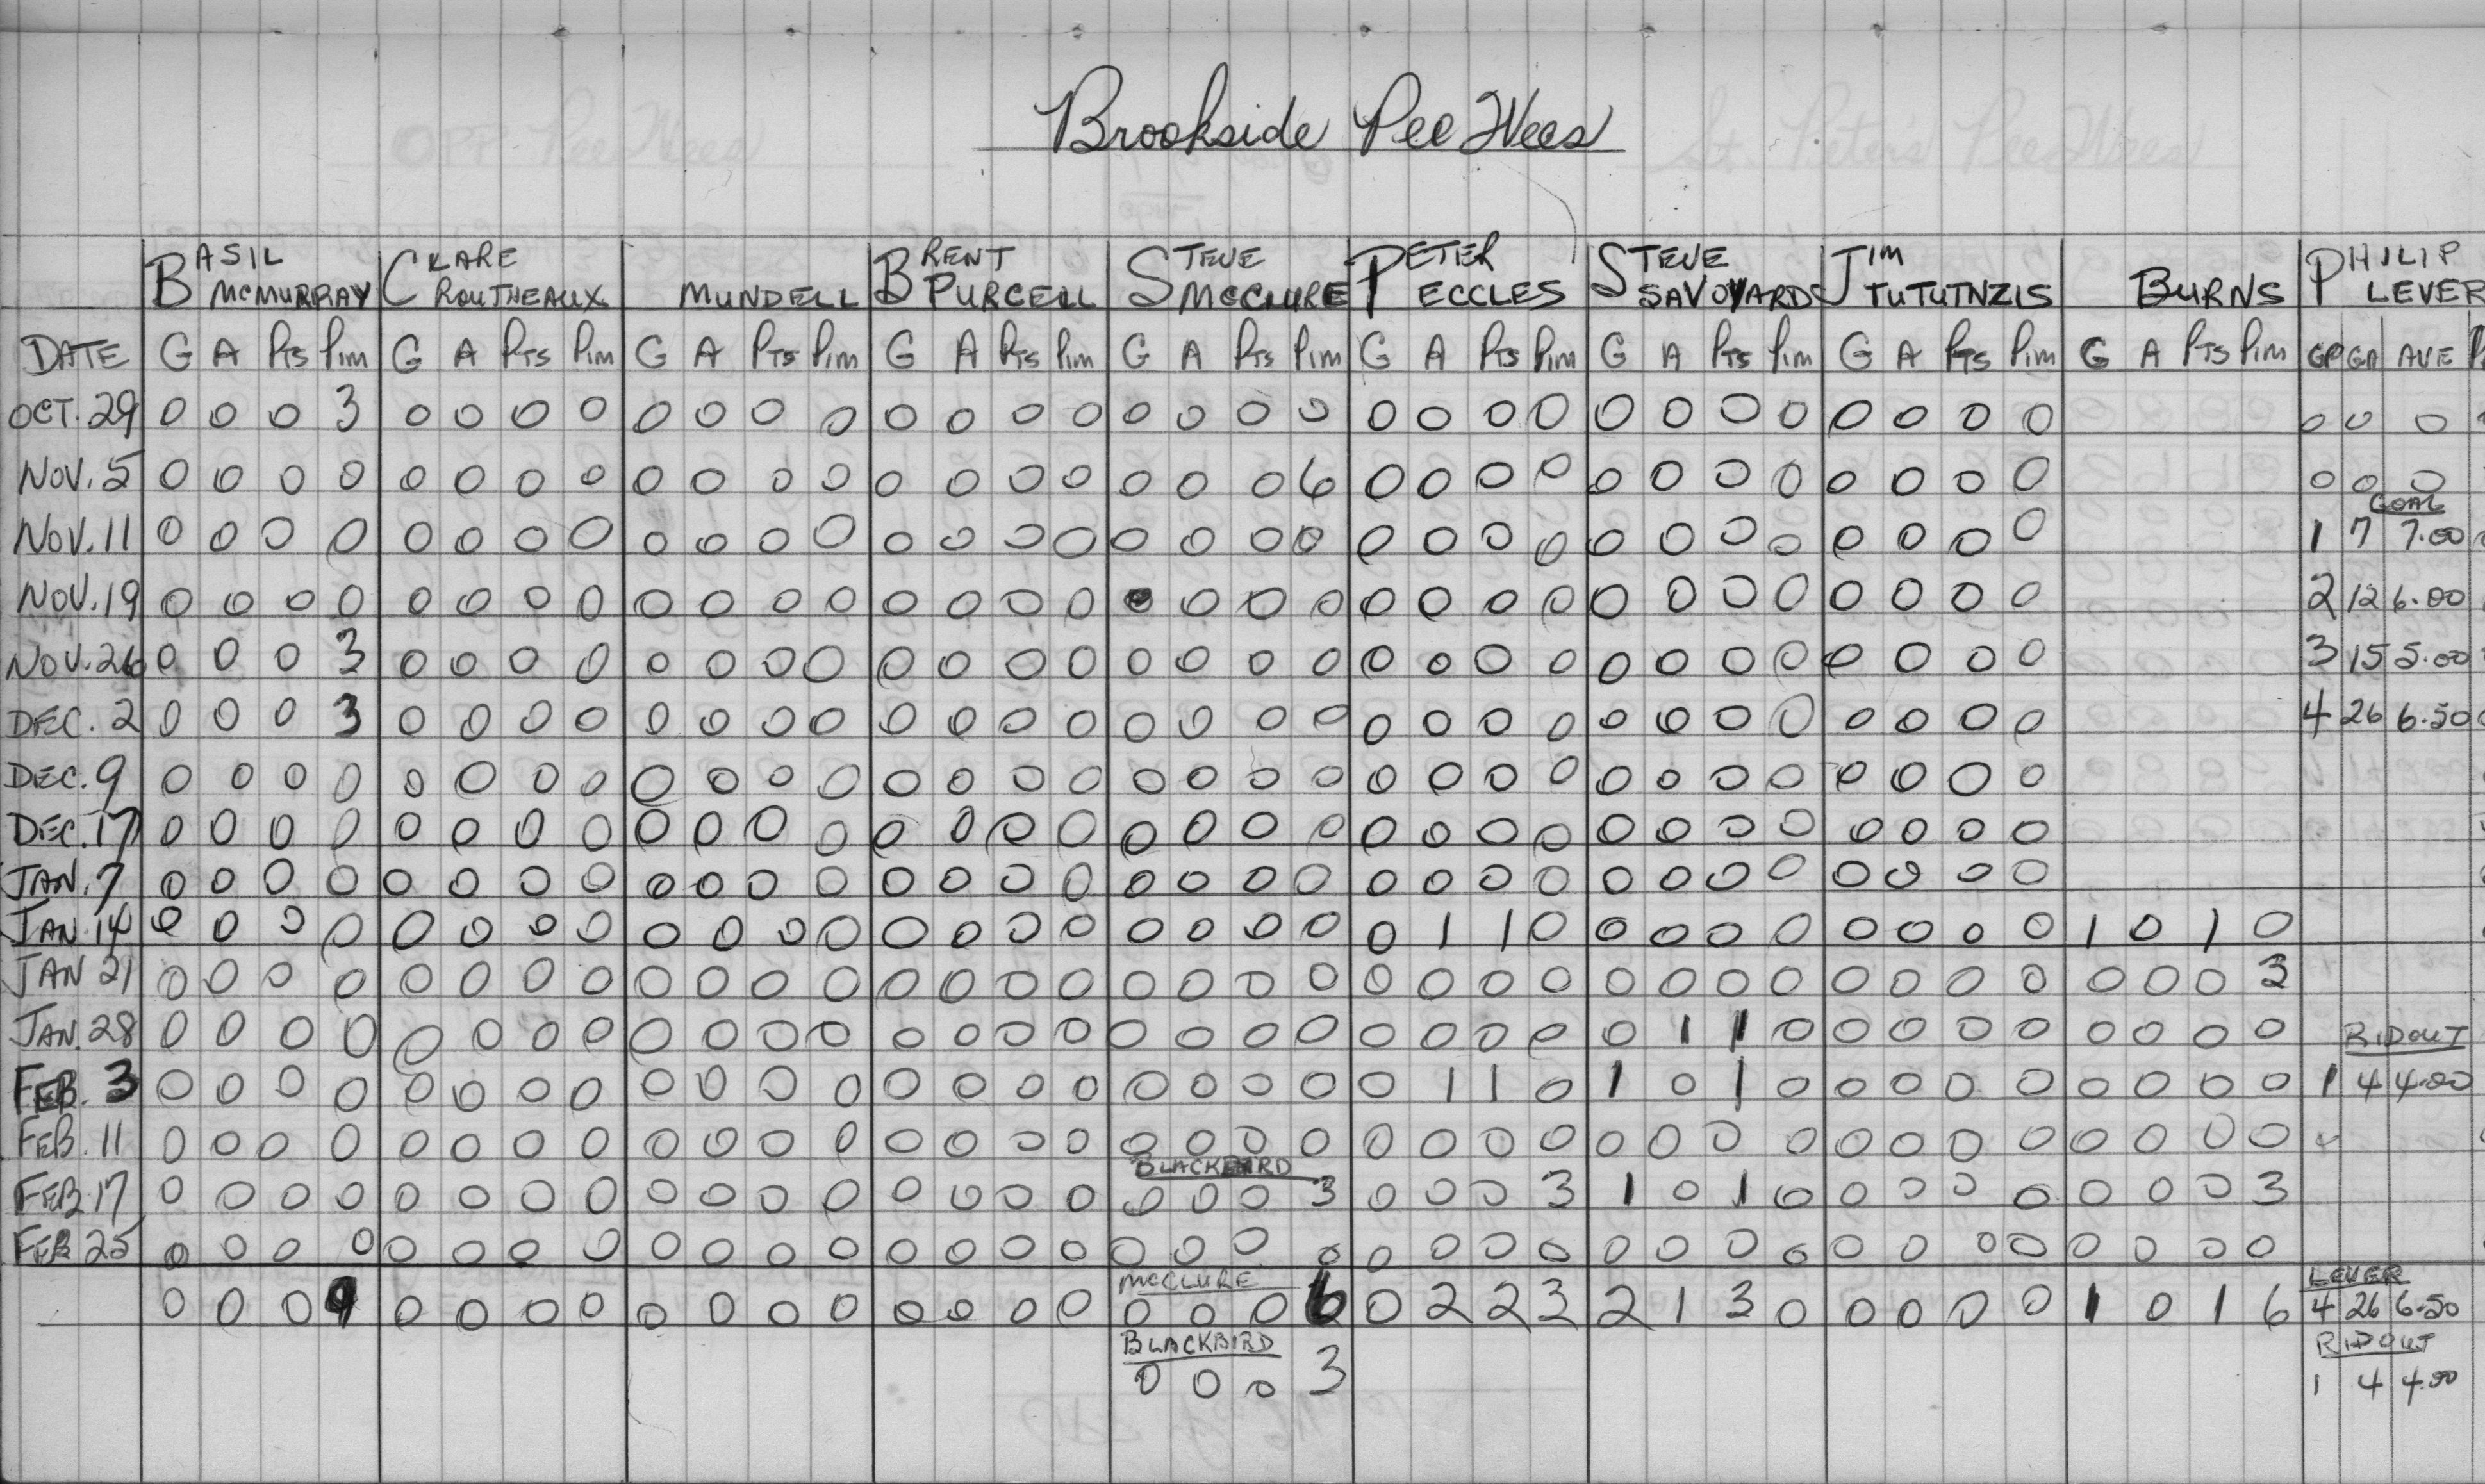 Brookside Pee Wees
BASIL MCMURRAY CLARE ROUTHEAUX MUNDELL BRENT PURCELL STEVE MCCLURE PETER ECCLES STEVE SAVOYARDS JIM TUTUTNZIS BURNS PHILIP LEVER
DATE G A Pts Pim G A Pts Pim G A Pts Pim G A Pts Pim G A Pts Pim G A Pts Pim G A Pts Pim G A Pts Pim G A Pts Pim GP GA AVE
OCT. 29 0 0 0 3 0 0 0 0 0 0 0 0 0 0 0 0 0 0 0 0 0 0 0 0 0 0 0 0 0 0 0 0 0 0 0
NOV. 5 0 0 0 0 0 0 0 0 0 0 0 0 0 0 0 0 0 0 0 6 0 0 0 0 0 0 0 0 0 0 0 0 0 0 0
GOAL
NOV. 11 0 0 0 0 0 0 0 0 0 0 0 0 0 0 0 0 0 0 0 0 0 0 0 0 0 0 0 0 0 0 0 0 1 7 7.00
NOV. 19 0 0 0 0 0 0 0 0 0 0 0 0 0 0 0 0 0 0 0 0 0 0 0 0 0 0 0 0 0 0 0 0 2 12 6.00
NOV. 26 0 0 0 3 0 0 0 0 0 0 0 0 0 0 0 0 0 0 0 0 0 0 0 0 0 0 0 0 0 0 0 0 3 15 5.00
DEC. 2 0 0 0 3 0 0 0 0 0 0 0 0 0 0 0 0 0 0 0 0 0 0 0 0 0 0 0 0 0 0 0 0 4 26 6.50
DEC. 9 0 0 0 0 0 0 0 0 0 0 0 0 0 0 0 0 0 0 0 0 0 0 0 0 0 0 0 0 0 0 0 0
DEC. 17 0 0 0 0 0 0 0 0 0 0 0 0 0 0 0 0 0 0 0 0 0 0 0 0 0 0 0 0 0 0 0 0
JAN. 7 0 0 0 0 0 0 0 0 0 0 0 0 0 0 0 0 0 0 0 0 0 0 0 0 0 0 0 0 0 0 0 0
JAN 14 0 0 0 0 0 0 0 0 0 0 0 0 0 0 0 0 0 0 0 0 0 1 1 0 0 0 0 0 0 0 0 0 1 0 1 0
JAN 21 0 0 0 0 0 0 0 0 0 0 0 0 0 0 0 0 0 0 0 0 0 0 0 0 0 0 0 0 0 0 0 0 0 0 0 3
JAN. 28 0 0 0 0 0 0 0 0 0 0 0 0 0 0 0 0 0 0 0 0 0 0 0 0 0 1 1 0 0 0 0 0 0 0 0 0 RIDOUT
FEB. 3 0 0 0 0 0 0 0 0 0 0 0 0 0 0 0 0 0 0 0 0 0 1 1 0 1 0 1 0 0 0 0 0 0 0 0 0 1 4 4.00
FEB. 11 0 0 0 0 0 0 0 0 0 0 0 0 0 0 0 0 0 0 0 0 0 0 0 0 0 0 0 0 0 0 0 0 0 0 0 0
BLACKBIRD
FEB. 17 0 0 0 0 0 0 0 0 0 0 0 0 0 0 0 0 0 0 0 3 0 0 0 3 1 0 1 0 0 0 0 0 0 0 0 3
FEB 25 0 0 0 0 0 0 0 0 0 0 0 0 0 0 0 0 0 0 0 0 0 0 0 0 0 0 0 0 0 0 0 0 0 0 0 0
MCCLURE LEVER
0 0 0 9 0 0 0 0 0 0 0 0 0 0 0 0 0 0 0 6 0 2 2 3 2 1 3 0 0 0 0 0 1 0 1 6 4 26 6.50
BLACKBIRD RIDOUT
0 0 0 3 1 4 4.00